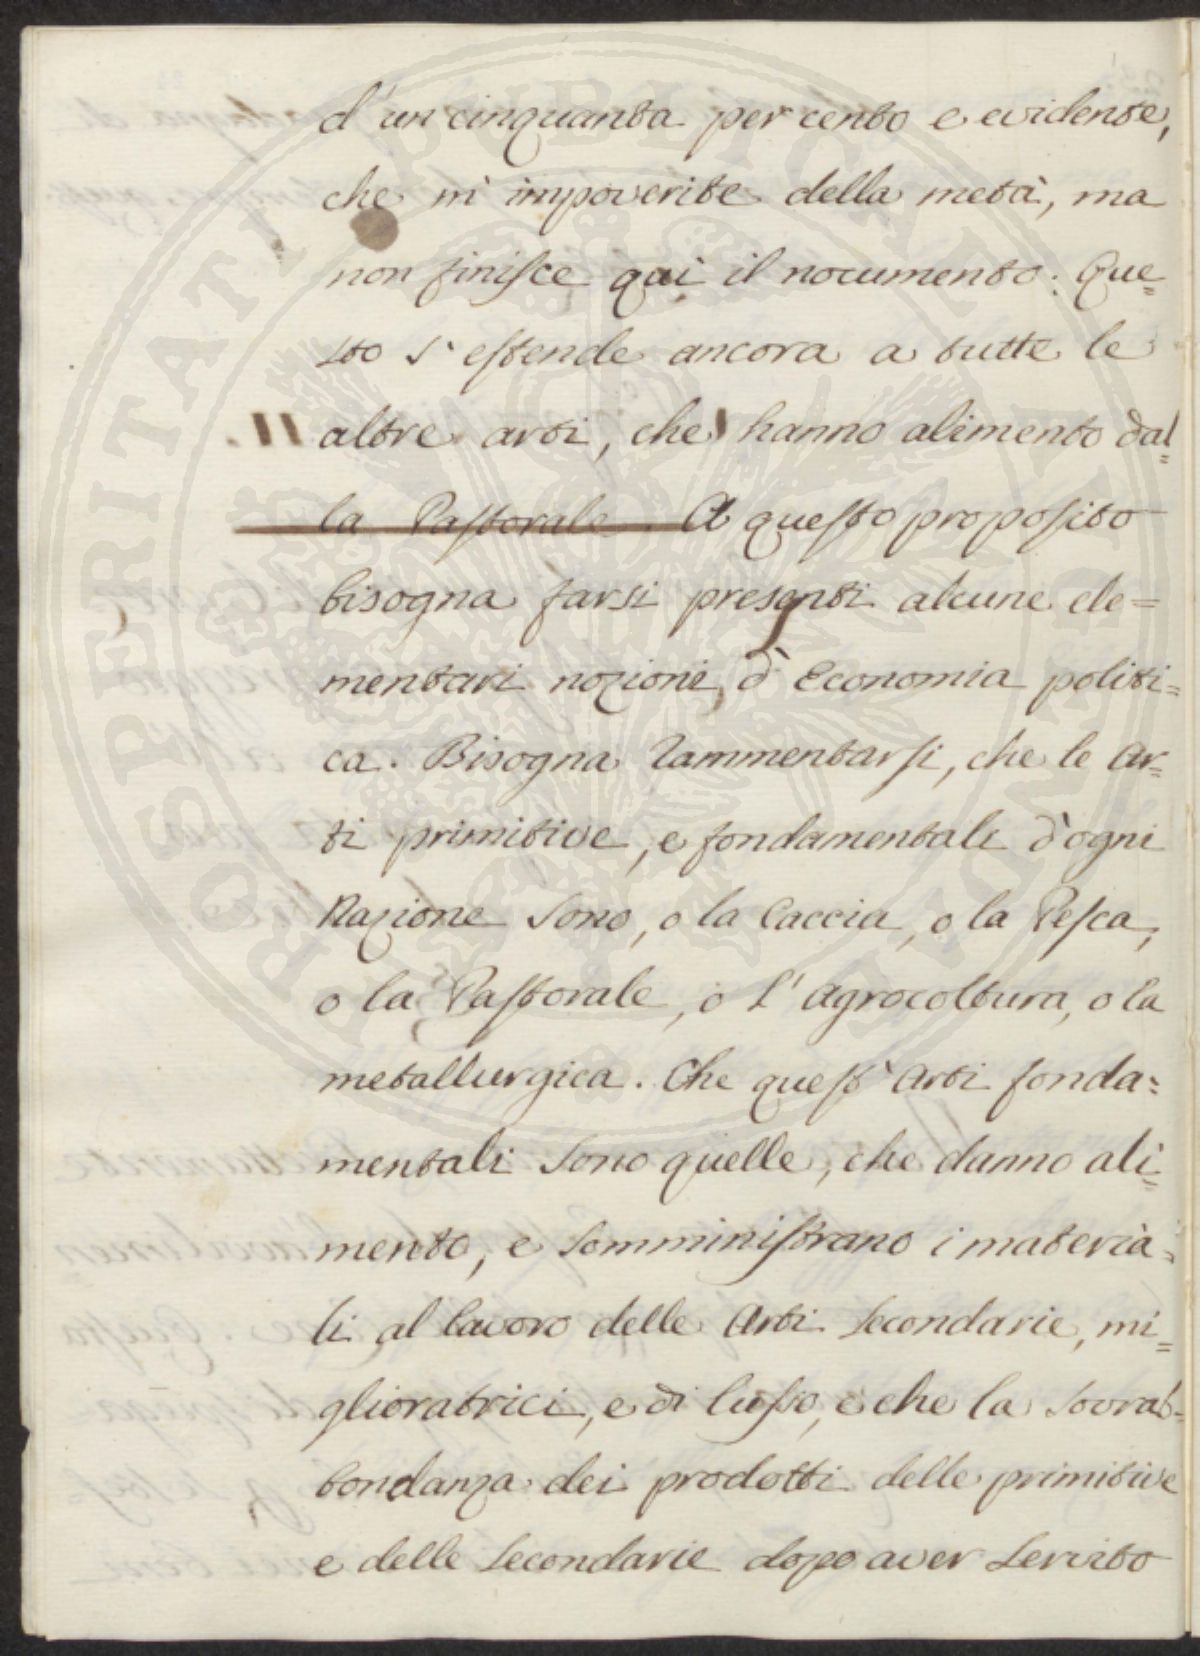 d'un cinquanta per cento e evidente,
che m'impoverite della metà, ma
non finisce quì il nocumento. Que=
sto s'estende ancora a tutte le
altre arti, che hanno alimento dal=
la Pastorale. A questo proposito
bisogna farsi presenti alcune ele=
mentari nozioni, d'Economia politi=
ca. Bisogna rammentarsi, che le Ar=
ti primitive, e fondamentali d'ogni
Nazione sono, o la Caccia, o la Pesca,
o la Pastorale, o l'Agrocoltura, o la
metallurgica. Che quest'Arti fonda=
mentali sono quelle, che danno ali=
mento, e somministrano i materia=
li al lavoro delle Arti secondarie, mi=
glioratrici, e di lusso, e che la sovrab=
bondanza dei prodotti delle primitive
e delle secondarie dopo aver servito
PROSPERITATI PUBLICAE AUGENDAE